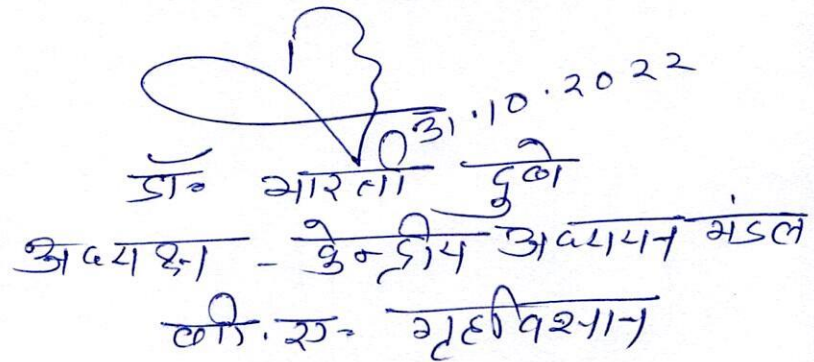 31.10.2022
डॉ॰ भारती दुबे
अध्यक्ष - केन्द्रीय अध्ययन मंडल
बी.ए. गृहविज्ञान